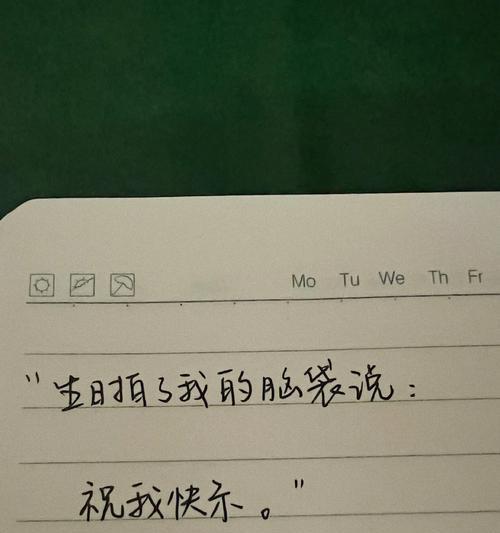 Mo Tu We Th Fr
"生日拍了我的脑袋说：
祝我快乐。"